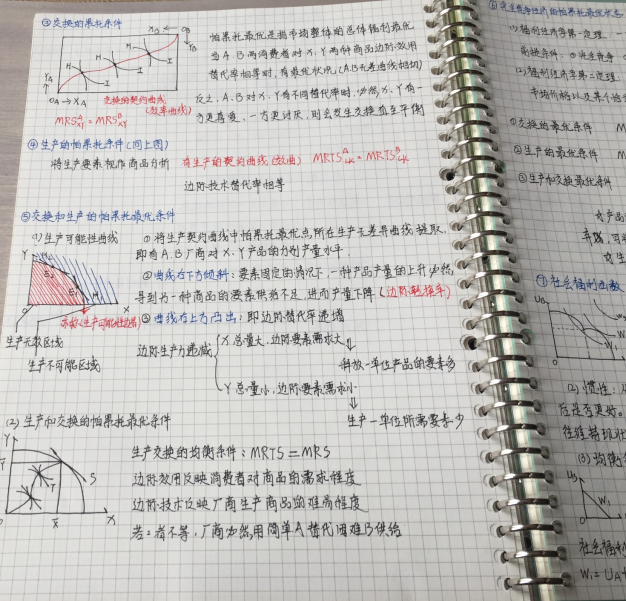 ③交换的帕累托条件
帕累托最优是指市场整体的总体福利最优
当A.B两消费者对X.Y两种商品边际效用
替代率相等时,有最优状况(A.B无差曲线相切)
反之,A.B对X.Y有不同替代率时,必然X.Y有一
方更喜爱,一方更讨厌,则会发生交换直至平衡
XB ← OB
YB
YA
OA → XA
II
I
交换的契约曲线
(效率曲线)
MRS^A_XY = MRS^B_XY
④生产的帕累托条件(同上图)
将生产要素视作商品分析 有生产的契约曲线(效曲) MRTS^A_LK = MRTS^B_LK
边际技术替代率相等
⑤交换和生产的帕累托最优条件
(1)生产可能性曲线
①将生产契约曲线中帕累托最优点所在生产无差异曲线提取,
即有A.B厂商对X.Y产品的力创产量水平.
②曲线右下方倾斜:要素固定的情况下,一种产品产量的上升必然
导致另一种商品的要素供给不足,进而产量下降(边际转换率)
③曲线右上方凸出:即边际替代率递增
Y
X
O
(生产可能性边界)
生产无效区域
生产不可能区域
边际生产力递减
X总量大,边际要素需求大
释放一单位产品的要素多
Y总量小,边际要素需求小
生产一单位所需要素少
(2)生产和交换的帕累托最优条件
Y
S
T
X
生产交换的均衡条件:MRTS = MRS
边际效用反映消费者对商品的需求程度
边际技术反映厂商生产商品的难易程度
若二者不等,厂商必然用简单A替代困难B供给
(1)福利经济学第一定理
(2)福利经济学第二定理
①交换的最优条件 M
②生产的最优条件 M
③生产和交换最优条件
⑦社会福利函数
UB
(2)惯性:
(3)均衡
UB
W1
社会福利
W1=UA+